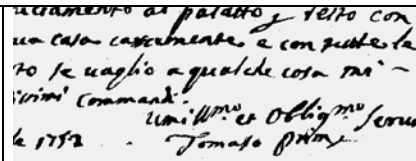 uciamento al palatto, e resto con
ua casa carcamente, e con tutte le
to se uaglio a qualche cosa mi
issimi Commandi.
Umill.mo et Obblig.mo Seruo
le 1752 . Tomaso Primi